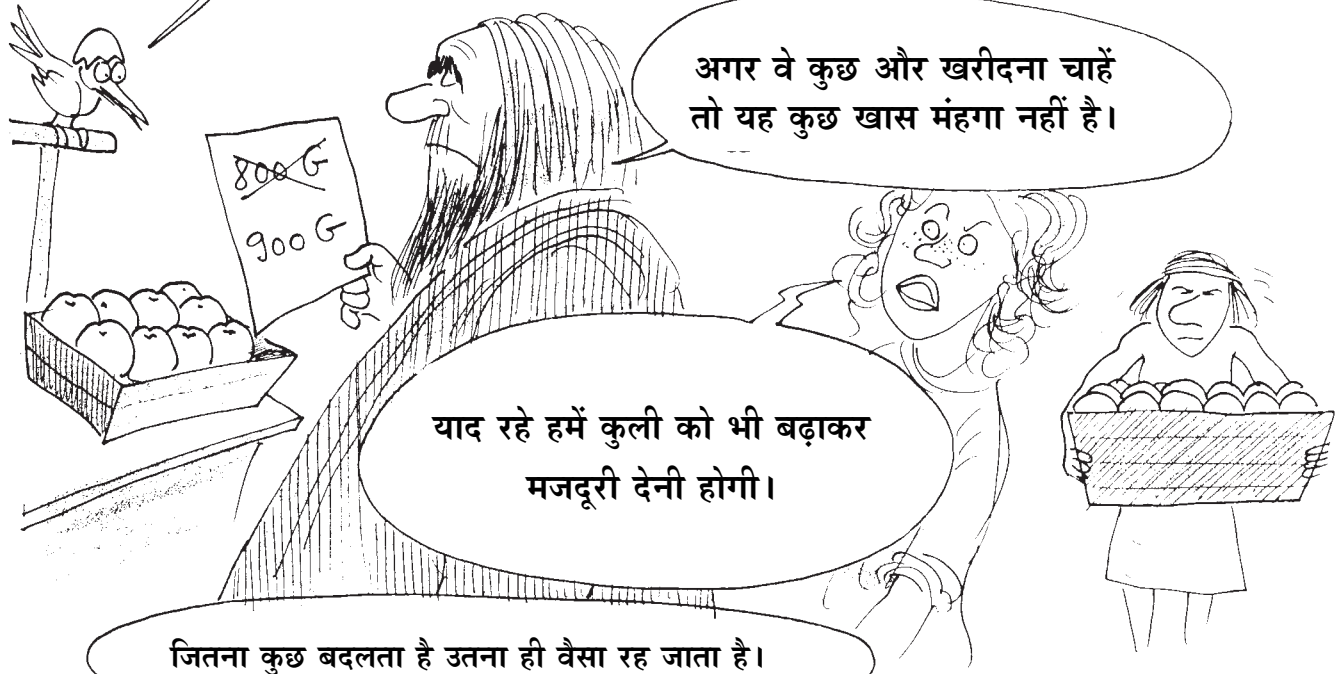 अगर वे कुछ और खरीदना चाहें
तो यह कुछ खास मंहगा नहीं है।
800 G
900 G
याद रहे हमें कुली को भी बढ़ाकर
मजदूरी देनी होगी।
जितना कुछ बदलता है उतना ही वैसा रह जाता है।